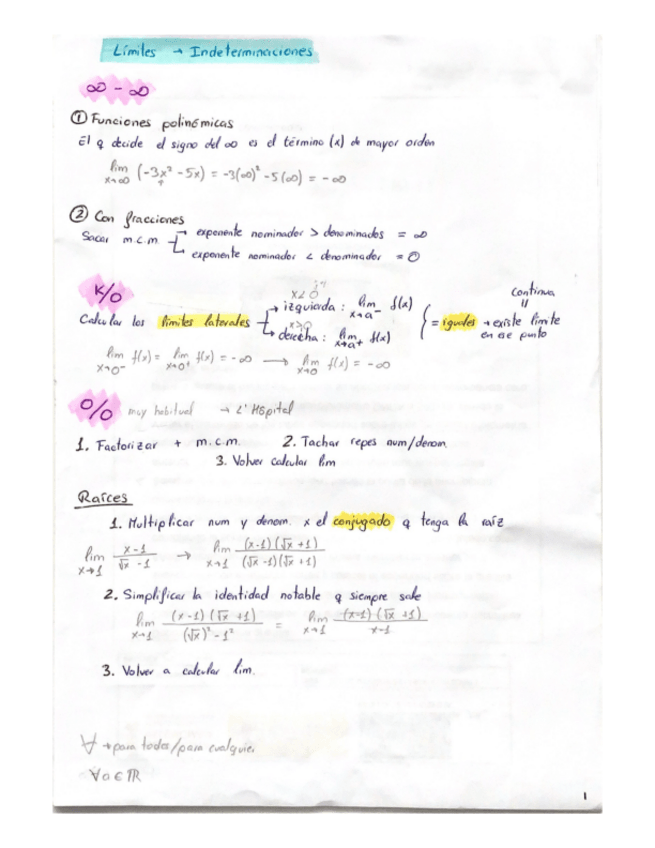 Límites → Indeterminaciones
∞ - ∞
① Funciones polinómicas
El q decide el signo del ∞ es el término (x) de mayor orden
lim x→∞ (-3x² - 5x) = -3(∞)² - 5(∞) = -∞
② Con fracciones
Sacar m.c.m. → exponente nominador > denominados = ∞
→ exponente nominador < denominador = 0
K/0
x<0
Calcular los límites laterales → izquierda: lim x→a⁻ f(x)
x>0
→ derecha: lim x→a⁺ f(x)
} = iguales → existe límite en ese punto
continua
||
lim x→0⁻ f(x) = lim x→0⁺ f(x) = -∞ → lim x→0 f(x) = -∞
0/0 muy habitual → L'Hôpital
1. Factorizar + m.c.m. 2. Tachar repes num/denom.
3. Volver calcular lim
Raíces
1. Multiplicar num y denom. x el conjugado q tenga la raíz
lim x→1 (x-1)/(√x -1) → lim x→1 (x-1)(√x +1)/(√x -1)(√x +1)
2. Simplificar la identidad notable q siempre sale
lim x→1 (x-1)(√x +1)/((√x)² - 1²) = lim x→1 (x-1)(√x +1)/(x-1)
3. Volver a calcular lim.
∀ → para todos/para cualquier
∀a ∈ ℝ
1